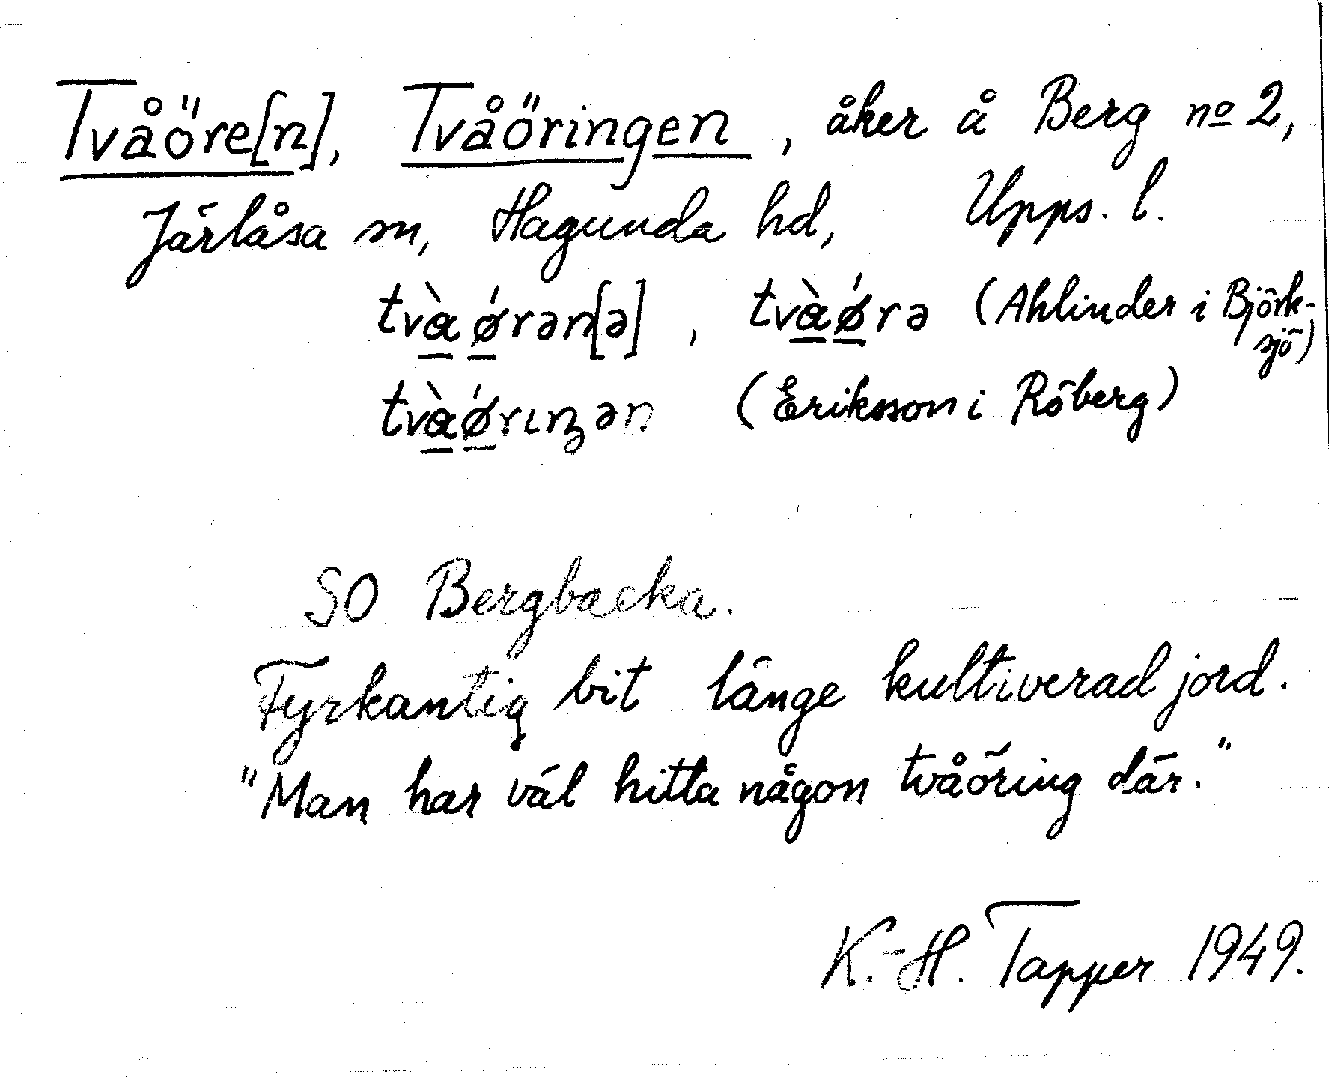 Tvåöre[n], Tvåöringen, åker å Berg nº 2,
Järlåsa sn, Hagunda hd, Upps. l.
tvὰǿrən[ə], tvὰǿrə (Ahlinder i Björk-
sjö)
tvὰǿrɩŋən (Eriksson i Röberg)
SO Bergbacka.
Fyrkantig bit länge kultiverad jord.
"Man har väl hitta någon tvåöring där."
K.-H. Tapper 1949.